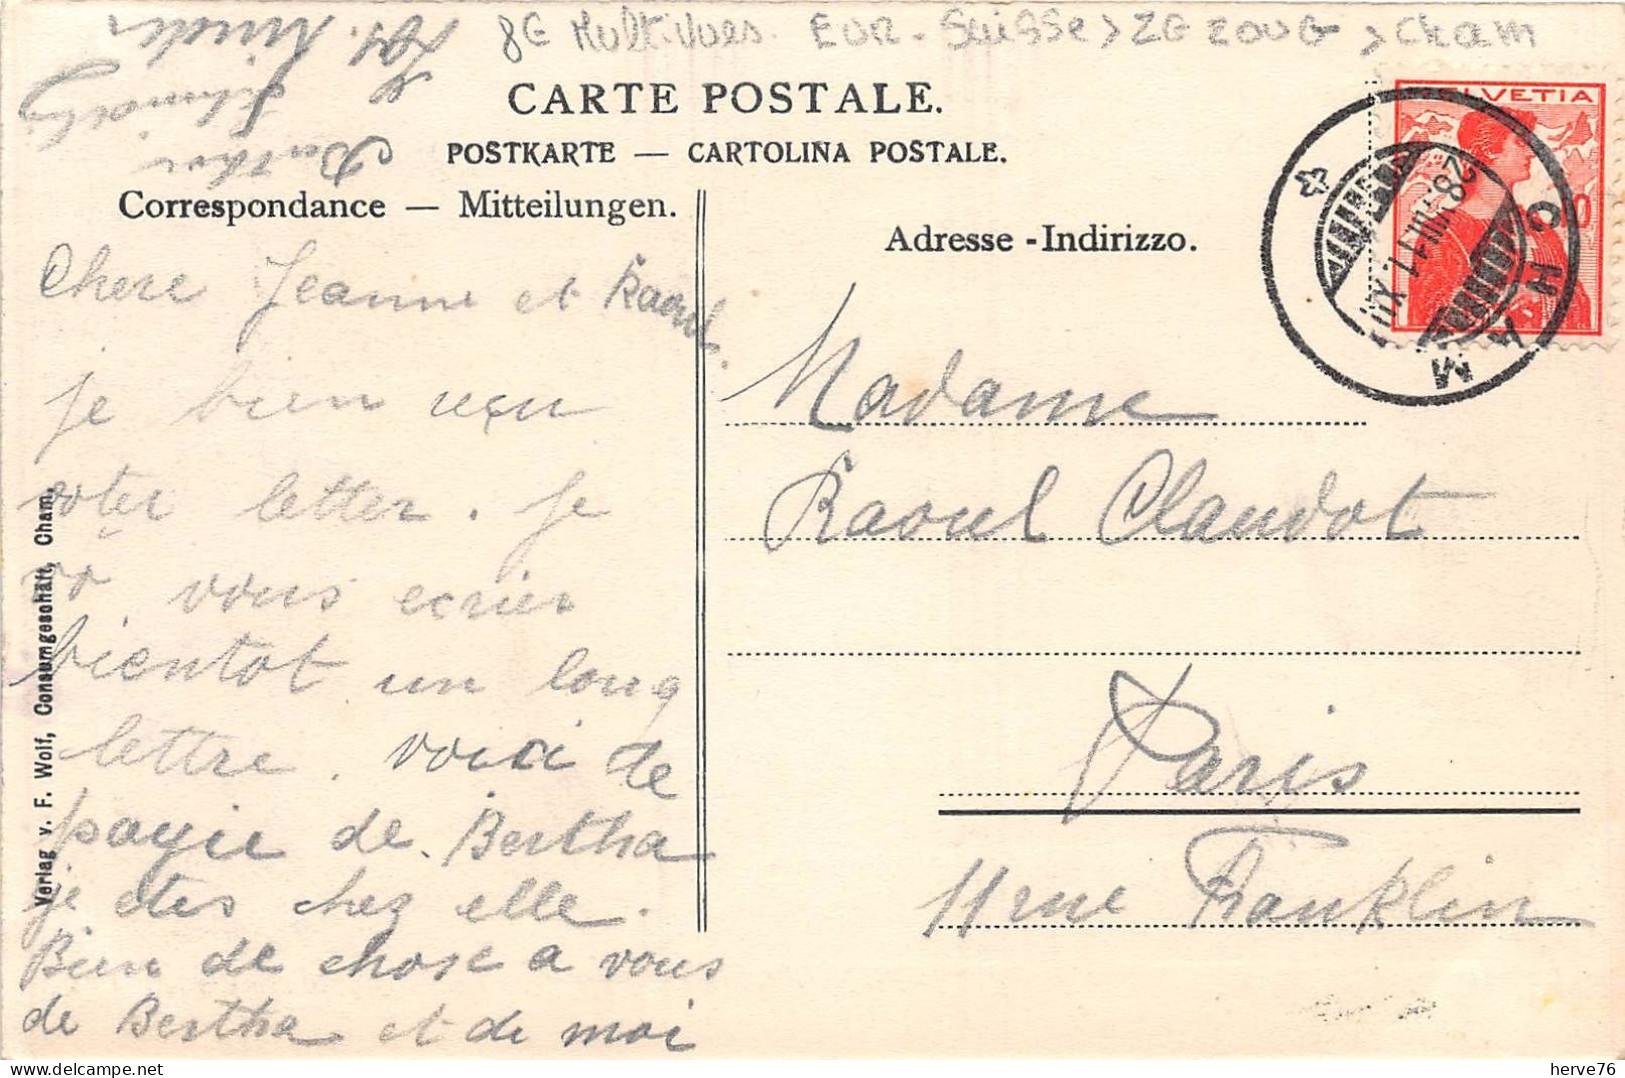 8E Multivues. EUR - Suisse > ZG ZOUG > Cham
CARTE POSTALE.
POSTKARTE — CARTOLINA POSTALE.
Correspondance — Mitteilungen.
Adresse - Indirizzo.
HELVETIA
CHAM
28. VIII 11. XII
Chere Jeanne et Raoul.
je bien reçu
voter letter. je
vous ecrier
bientot un long
lettre. voici de
payie de Bertha
je etes chez elle.
Bien de chose a vous
de Bertha et de moi
Bertha
Madame
Raoul Claudot
Paris
11 rue Franklin
Verlag v. F. Wolf, Consumgeschäft, Cham.
herve76